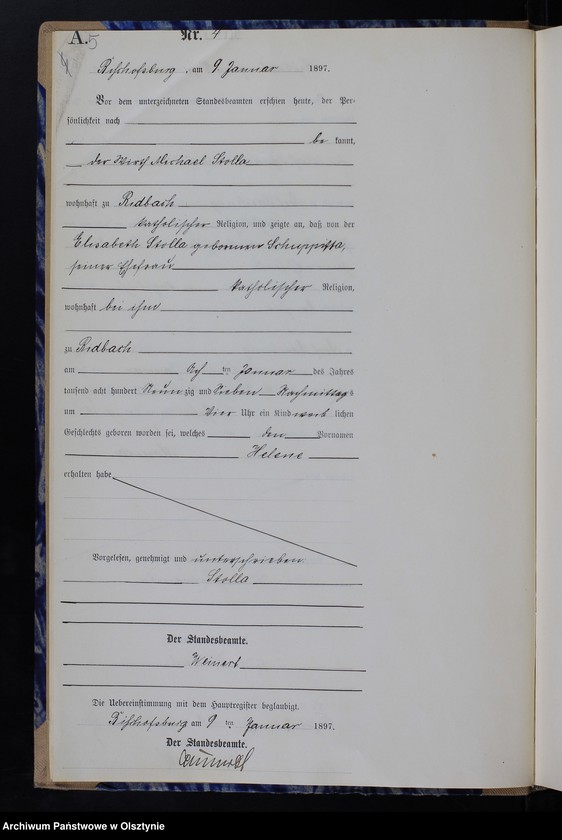 A. 5
Nr. 4
Bischofsburg, am 9 Januar 1897.
Vor dem unterzeichneten Standesbeamten erschien heute, der Per-
sönlichkeit nach
be kannt,
der Wirth Michael Stolla
wohnhaft zu Ridbach
katholischer Religion, und zeigte an, daß von der
Elisabeth Stolla geborenen
seiner Ehefrau
katholischer Religion,
wohnhaft bei ihm
zu Ridbach
am ten Januar des Jahres
tausend acht hundert Neunzig und Sieben Nachmittags
um Vier Uhr ein Kind weib lichen
Geschlechts geboren worden sei, welches den Vornamen
Helene
erhalten habe
Vorgelesen, genehmigt und unterschrieben
Stolla
Der Standesbeamte.
Weinert
Die Uebereinstimmung mit dem Hauptregister beglaubigt.
Bischofsburg am 9 ten Januar 1897.
Der Standesbeamte.
Archiwum Państwowe w Olsztynie